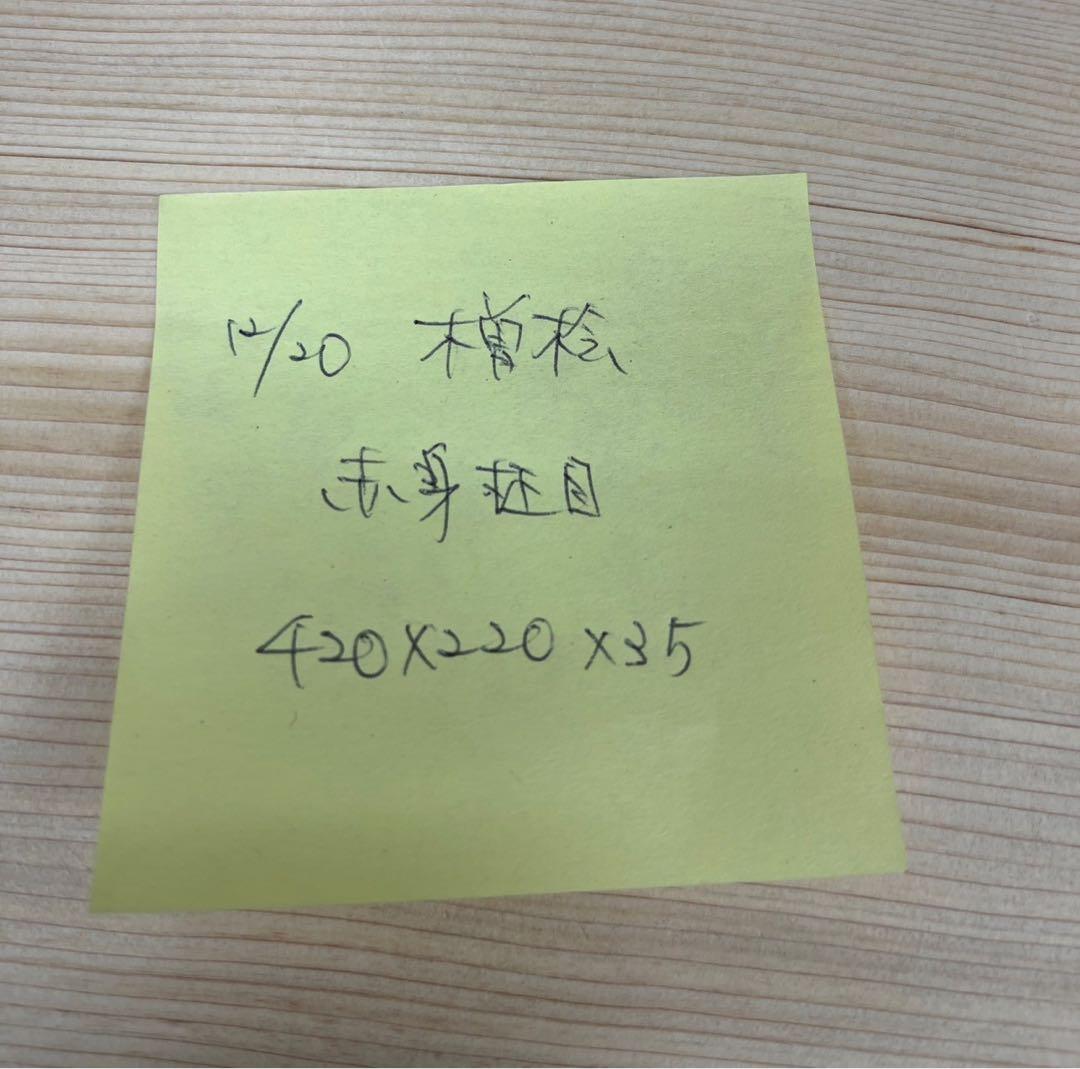 12/20 木曽桧
赤身柾目
420×220×35